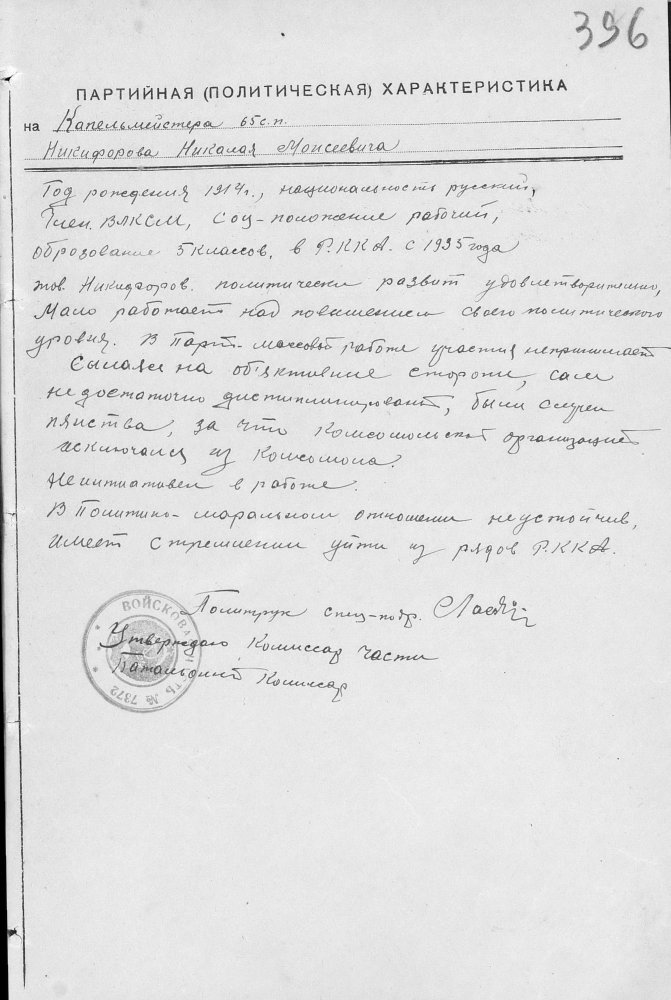 396
ПАРТИЙНАЯ (ПОЛИТИЧЕСКАЯ) ХАРАКТЕРИСТИКА
на Капельмейстера 65 с.п.
Никифорова Николая Моисеевича
Год рождения 1914г., национальность русский,
Член. ВЛКСМ, соц-положение рабочий,
образование 5 классов, в Р.ККА. с 1935 года
тов. Никифоров. политически развит удовлетворительно,
Мало работает над повышением своего политического
уровня. В Парт-массовой работе участия непринимает
Сылаяся на объктивные стороны, сам
недостаточно дистиплинирован, были случаи
пянства, за что комсомольской организацией
исключался из комсомола.
Неинитиативен в работе.
В Политико-моральном отношении неустойчив,
имеет стремлении уйти из рядов Р.ККА.
Политрук спец-подр.
Утверждаю Комиссар части
Батальоный Комиссар
ВОЙСКОВАЯ ЧАСТЬ № 7372